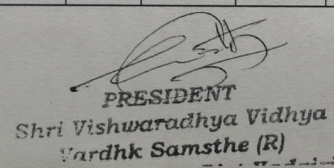 PRESIDENT
Shri Vishwaradhya Vidhya
Vardhk Samsthe (R)